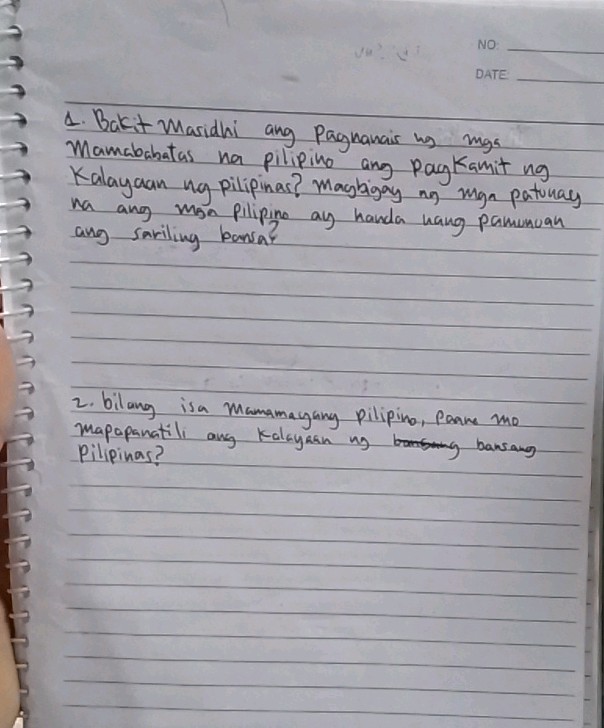 NO:
DATE:
1. Bakit Masidhi ang Pagnanais ng mga
Mamababatas na pilipino ang pagKamit ng
Kalayaan ng pilipinas? Magbigay ng mga patunay
na ang mga Pilipino ay handa nang pamunuan
ang sariling bansa?
2. bilang isa mamamayang pilipino, Paano mo
mapapanatili ang Kalayaan ng bansang
Pilipinas?